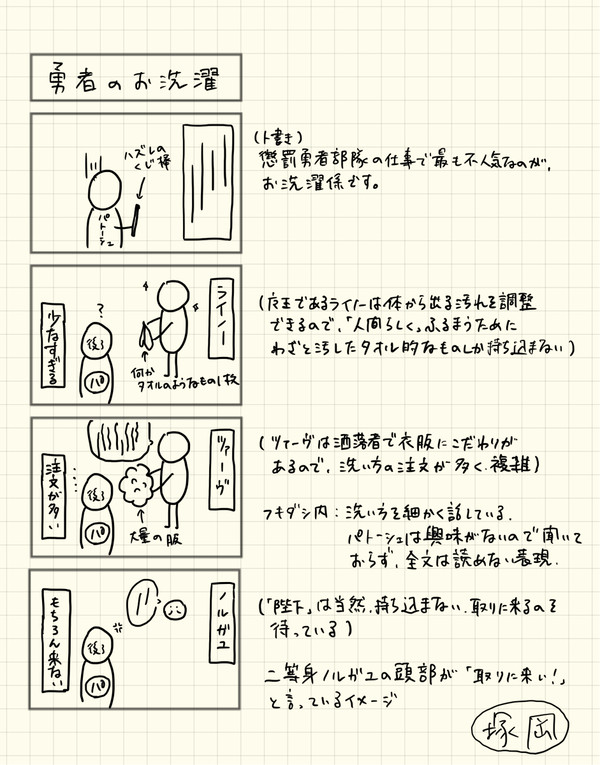 勇者のお洗濯
ハズレの
くじ棒
パトーシェ
(ト書き)
懲罰勇者部隊の仕事で最も不人気なのが、
お洗濯係です。
ライノー
少なすぎる
?
後ろ
パト
何か
タオルのようなもの1枚
(魔王であるライノーは体から出る汚れを調整
できるので、「人間らしく」ふるまうために
わざと汚したタオル的なものしか持ち込まない)
ツァーヴ
注文が多い
後ろ
パト
大量の服
(ツァーヴは洒落者で衣服にこだわりが
あるので、洗い方の注文が多く、複雑)
フキダシ内:洗い方を細かく話している。
パトーシェは興味がないので聞いて
おらず、全文は読めない表現。
ノルガユ
もちろん来ない
後ろ
パト
(「陛下」は当然、持ち込まない。取りに来るのを
待っている)
二等身ノルガユの頭部が「取りに来い!」
と言っているイメージ
塚岡